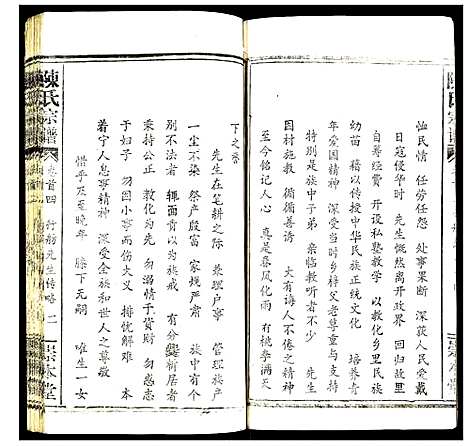 恤民情　任勞任怨　處事果斷　深获人民爱戴
日寇侵华时　先生慨然离开政界　回归故里
自筹经费　开设私塾教学　以教化乡里民族
幼苗　藉以传授中华民族正统文化　培养青
年爱国精神　深受当时乡梓父老尊重与支持
特别是族中子弟　亲临教听者不少　先生
因村施教　循循善诱　大有诲人不倦之精神
至今铭记人心　真是春风化雨　有桃李满天
下之乐
先生在笔耕之际　兼理户事　管理族产
一尘不染　祭产殷富　家规严肃　族中有个
别不法者　辄面责以为族戒　有分爨析居者
秉持公正　教化为先　勿溺情于貨財　勿惑志
于妇子　勿因小事而伤大义　排忧解难　本
着宁人息事精神　深受全族和世人之尊敬
惜乎乃至晚年　膝下无嗣　唯生一女
陳氏宗譜
卷首四　行舫先生传略　二
崇本堂